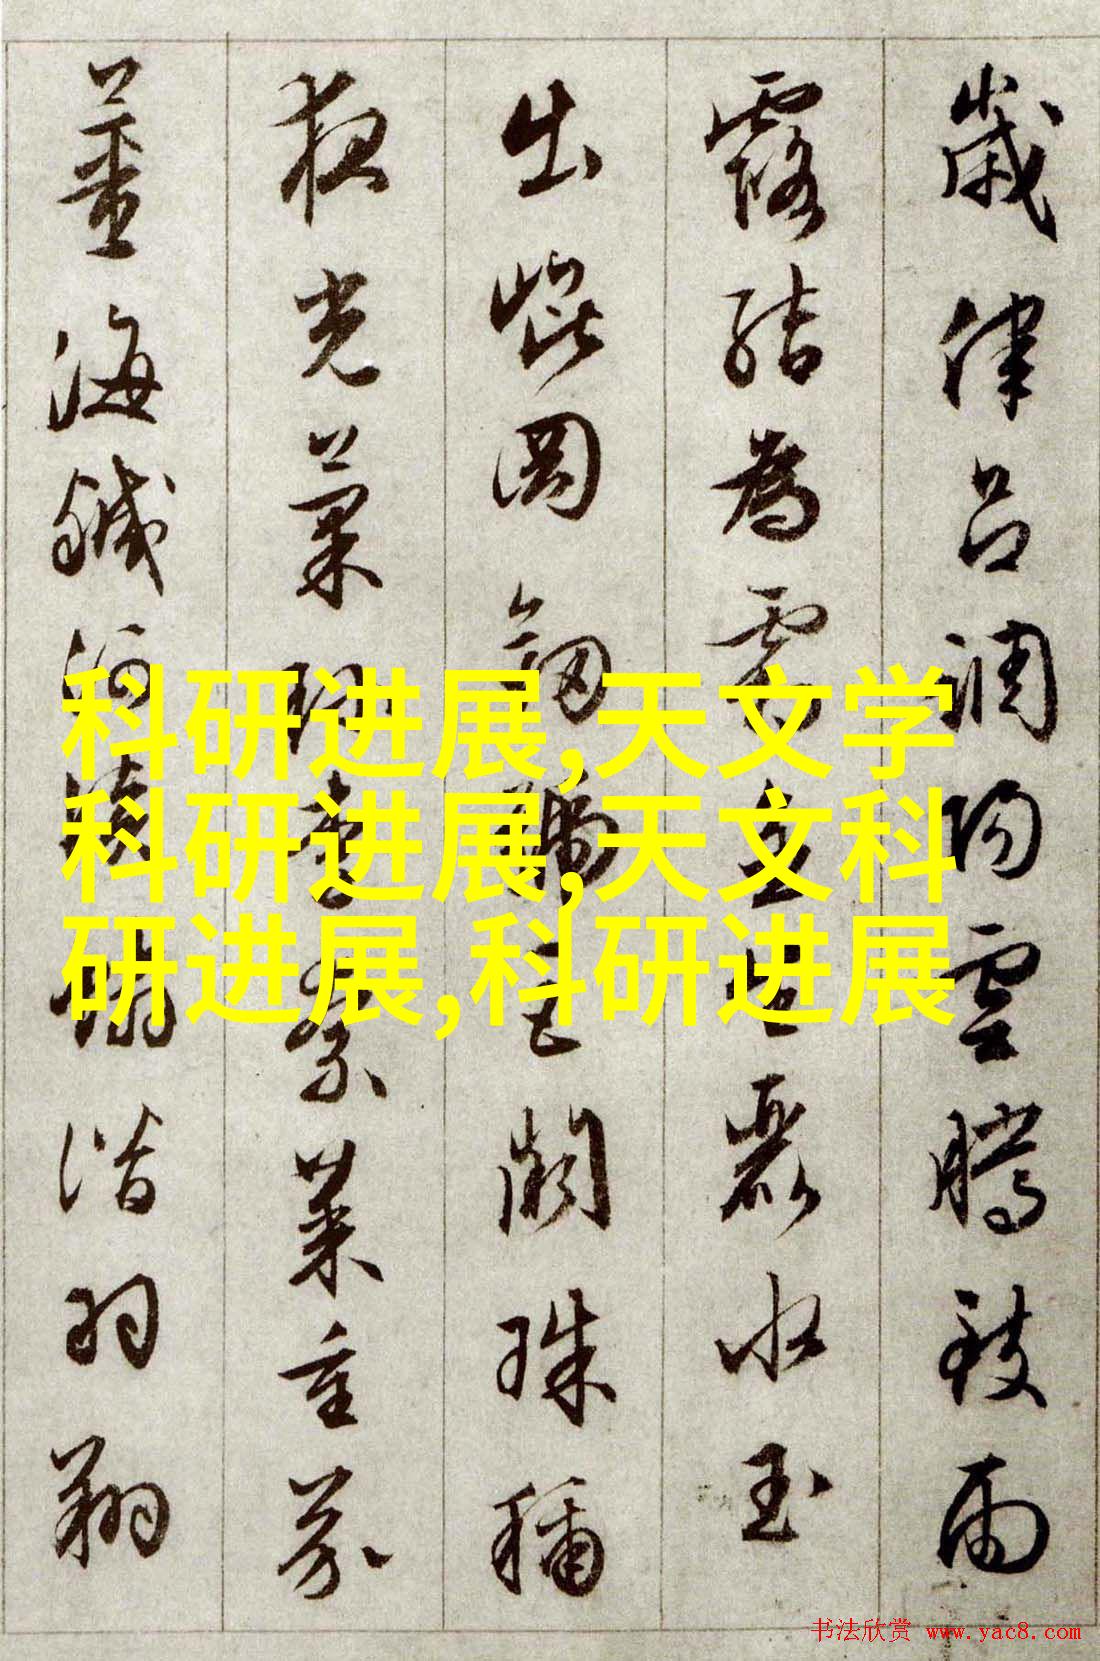 歲律呂調陽雲騰致雨
露結為霜金生麗水玉
出崐岡劒號巨闕珠稱
夜光菓珍李柰菜重芥
薑海鹹河淡鱗潛羽翔
科研进展,天文学
科研进展,天文科
研进展,科研进展
书法欣赏 www.yac8.com